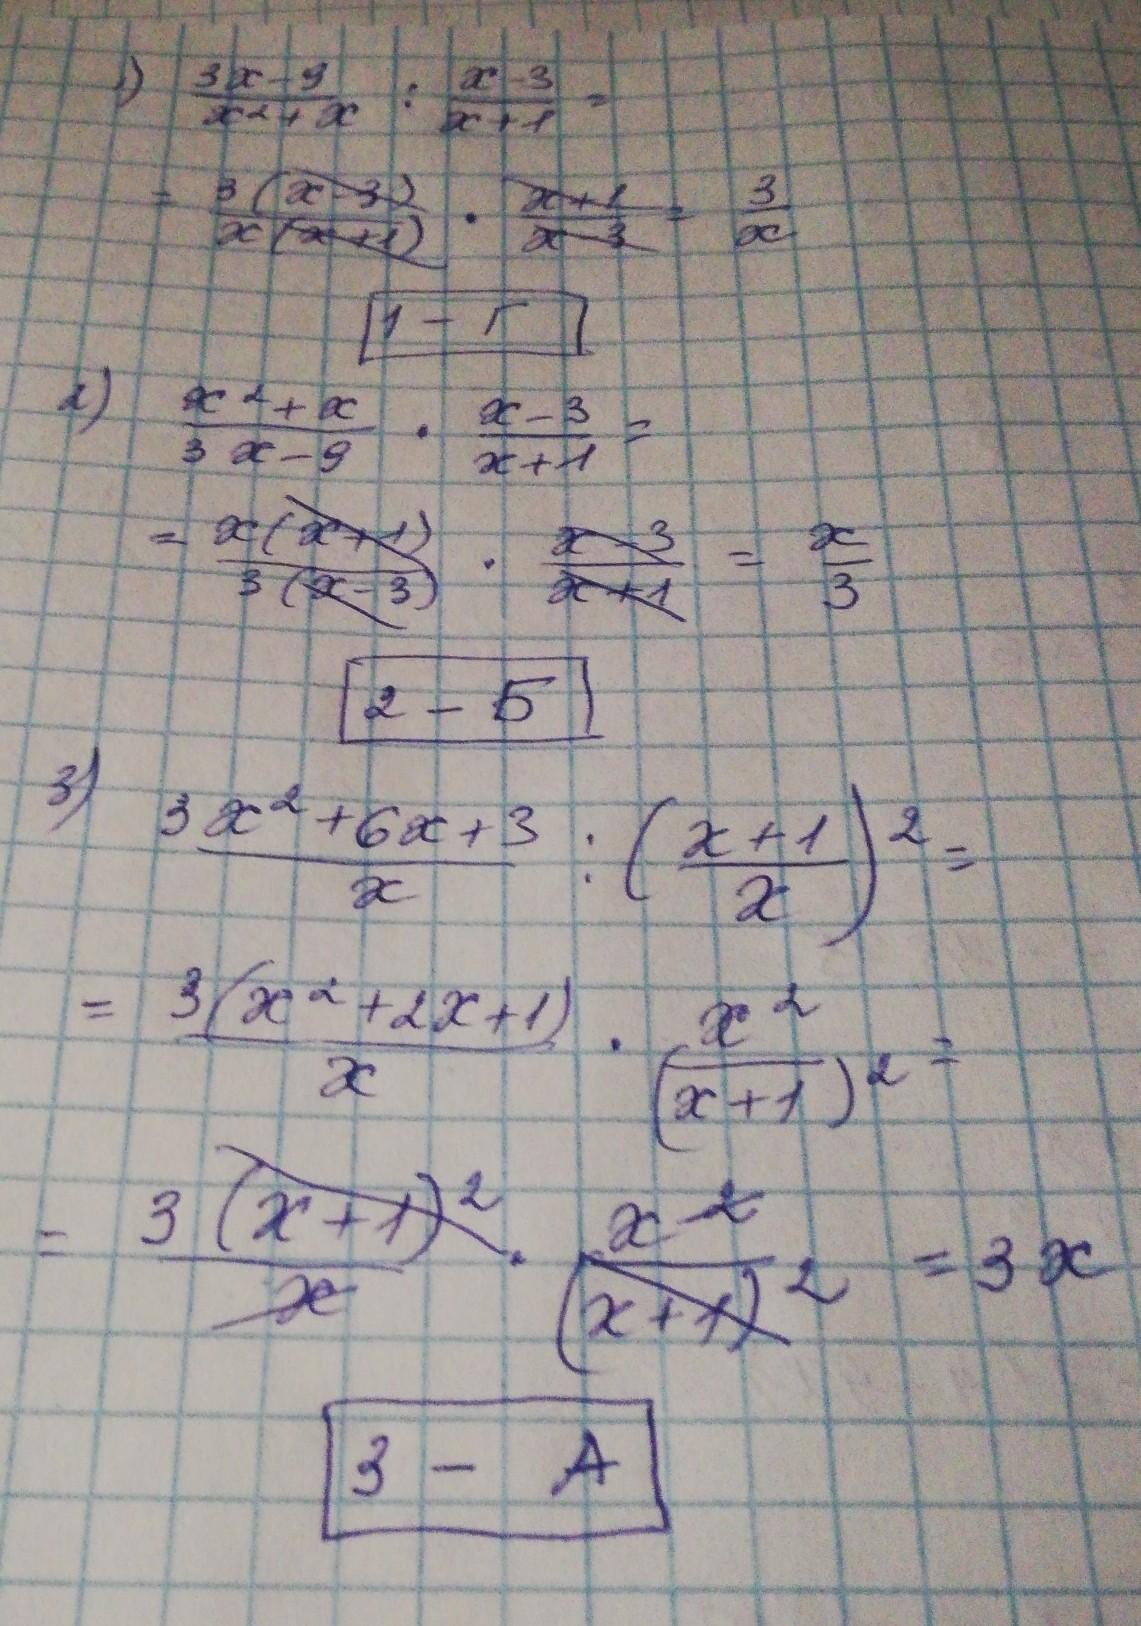 1) (3x-9)/(x²+x) : (x-3)/(x+1) =
= 3(x-3)/x(x+1) · (x+1)/(x-3) = 3/x
1 - Г
2) (x²+x)/(3x-9) · (x-3)/(x+1) =
= x(x+1)/3(x-3) · (x-3)/(x+1) = x/3
2 - Б
3) (3x²+6x+3)/x : ((x+1)/x)² =
= 3(x²+2x+1)/x · x²/(x+1)² =
= 3(x+1)²/x · x²/(x+1)² = 3x
3 - А